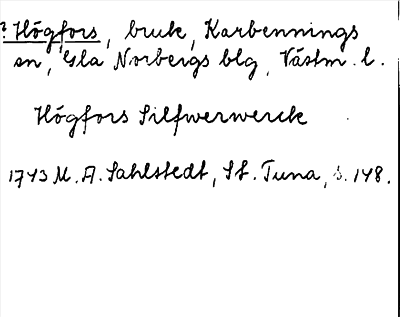 ? Högfors, bruk, Karbennings
sn, Gla Norbergs blg, Västm. l.
Högfors Silfwerwerck
1743 M. A. Sahlstedt, St. Tuna, s. 148.